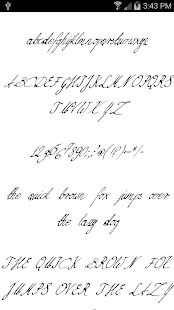 3:43 PM
abcdefghijklmnopqrstuvwxyz
ABCDEFGHIJKLMNOPQRS
TUVWXYZ
the quick brown fox jumps over
the lazy dog
THE QUICK BROWN FOX
JUMPS OVER THE LAZY